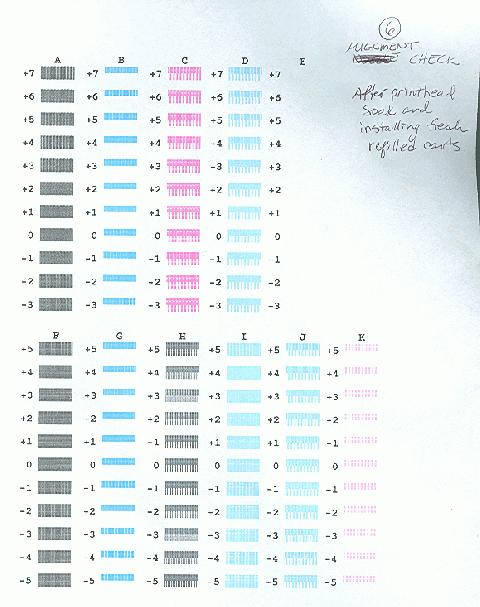 6
ALIGNMENT
CHECK
After printhead
soak and
installing
refilled carts
A B C D E
+7 +7 +7 +7 +7
+6 +6 +6 +6 +6
+5 +5 +5 +5 +5
+4 +4 +4 +4 +4
+3 +3 +3 +3 +3
+2 +2 +2 +2 +2
+1 +1 +1 +1 +1
0 0 0 0 0
-1 -1 -1 -1 -1
-2 -2 -2 -2 -2
-3 -3 -3 -3 -3
F G H I J K
+5 +5 +5 +5 +5 +5
+4 +4 +4 +4 +4 +4
+3 +3 +3 +3 +3 +3
+2 +2 +2 +2 +2 +2
+1 +1 +1 +1 +1 +1
0 0 0 0 0 0
-1 -1 -1 -1 -1 -1
-2 -2 -2 -2 -2 -2
-3 -3 -3 -3 -3 -3
-4 -4 -4 -4 -4 -4
-5 -5 -5 -5 -5 -5